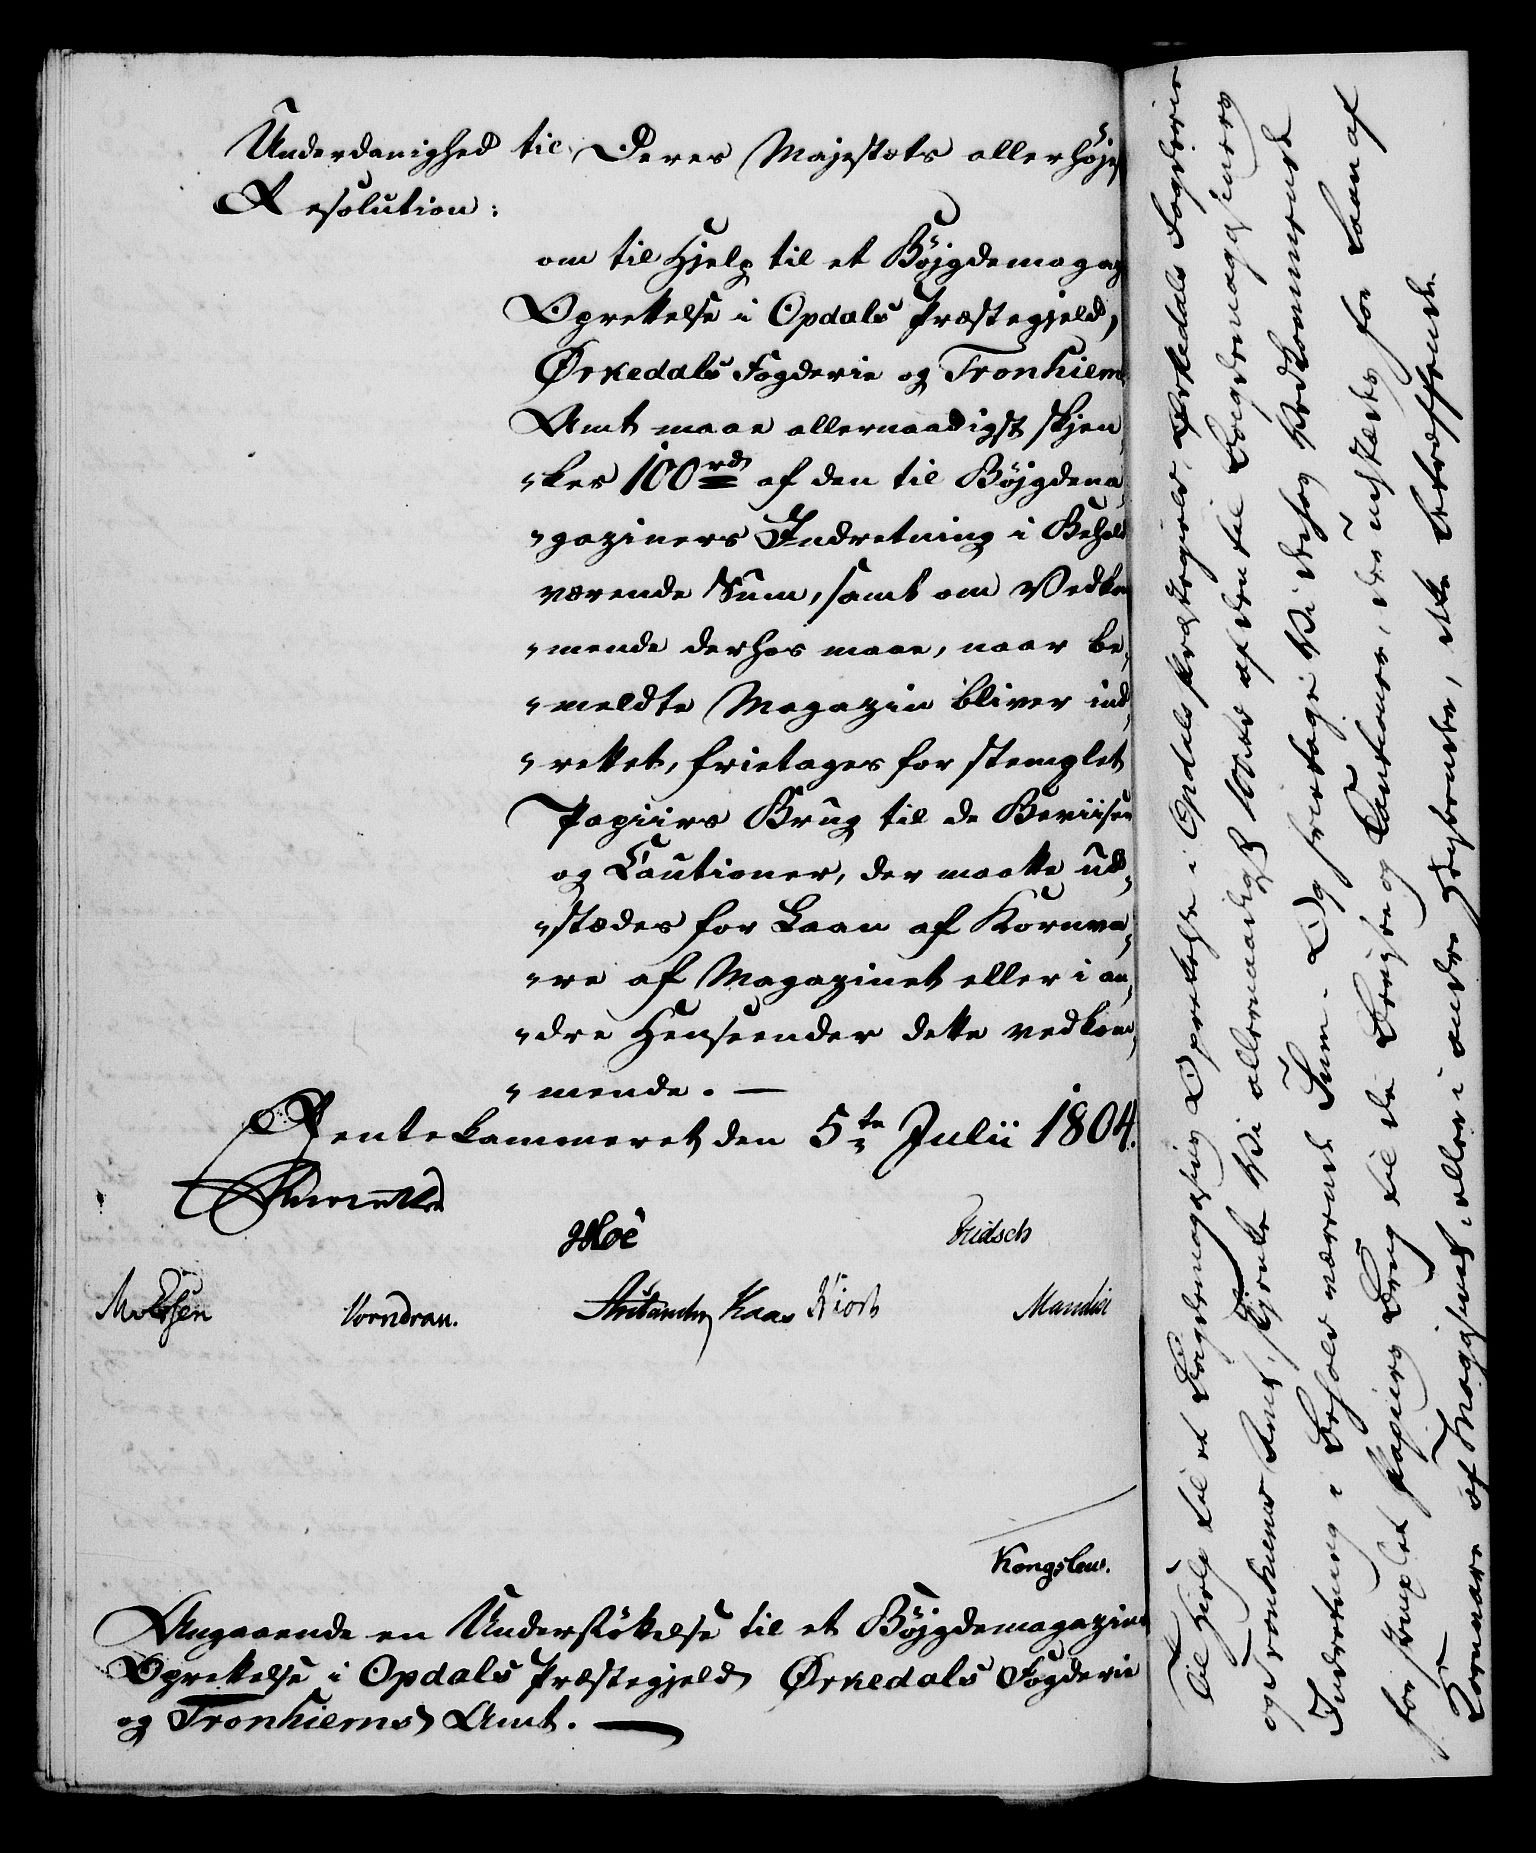 Underdanighed til Deres Majestæts allerhøjes
Resolution:
om til Hjelp til et Böjgdemagaz
Oprettelse i Opdals Præstegjeld,
Ørkedals Fogderie og Tronhiems
Amt maae allernaadigst skjen„
„kes 100 rd af den til Böjgdema„
„gaziners Indretning i Behold
værende Sum, samt om Vedkom
„mende derhos maae, naar be„
„meldte Magazin bliver ind„
„rettet, frietages for stemplet
Papiirs Brug til de Beviiser
og Cautioner, der maatte ud„
„stædes for Laan af Kornva„
„re af Magazinet eller i an„
„dre Henseender dette vedkom„
„mende. —
Rentekammeret den 5te Julii 1804.
Hoë
Fridsch
Vorndran.
Kaas
Kiorh
Kongslew.
Angaaende en Understöttelse til et Böjgdemagazins
Oprettelse i Opdals Præstegjeld Ørkedals Fogderie
og Tronhiems Amt. —
Til Hjelp til et Bøigdemagasins Oprettelse i Opdals Præstegield, Ørkedals Fogderie
og Tronhiems Amt, skjenke Vi allernaadigst 100 rd af den til Bøigdemagasiners
Indretning i Behold værende Sum. Og fritage Vi derhos Vedkommende
for stemplet Papiirs Brug til de Beviise og Cautioner, der udstædes for Laan af
Kornvare af Magasinet, eller i andre Henseender, dette betræffende.